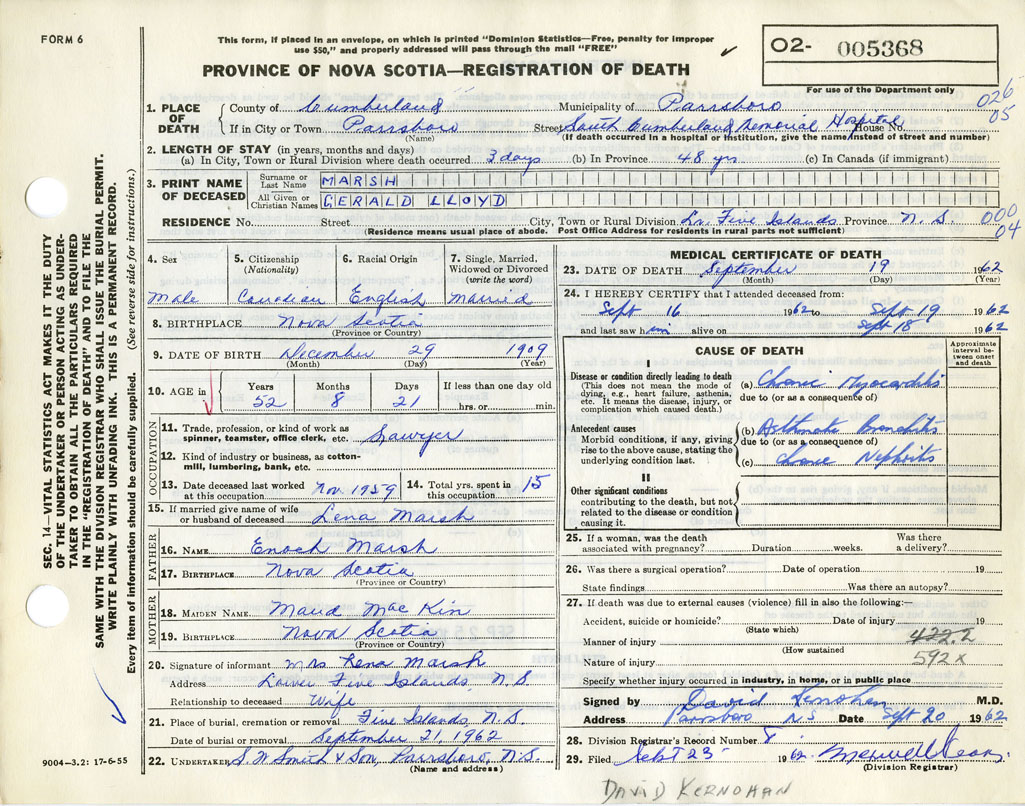 FORM 6
This form, if placed in an envelope, on which is printed "Dominion Statistics—Free, penalty for improper
use $50," and properly addressed will pass through the mail "FREE"
O2- 005368
PROVINCE OF NOVA SCOTIA—REGISTRATION OF DEATH
For use of the Department only
026
05
1. PLACE OF DEATH
County of Cumberland Municipality of Parrsboro
If in City or Town Parrsboro Street South Cumberland Memorial Hospital House No.
(Name) (If death occurred in a hospital or institution, give the name instead of street and number)
2. LENGTH OF STAY (in years, months and days)
(a) In City, Town or Rural Division where death occurred 3 days (b) In Province 48 yrs (c) In Canada (if immigrant)
3. PRINT NAME OF DECEASED
Surname or Last Name MARSH
All Given or Christian Names GERALD LLOYD
RESIDENCE No. Street City, Town or Rural Division Lr. Five Islands Province N. S.
(Residence means usual place of abode. Post Office Address for residents in rural parts not sufficient)
000
04
4. Sex
Male
5. Citizenship
(Nationality)
Canadian
6. Racial Origin
English
7. Single, Married,
Widowed or Divorced
(write the word)
Married
8. BIRTHPLACE Nova Scotia
(Province or Country)
9. DATE OF BIRTH December 29 1909
(Month) (Day) (Year)
10. AGE in
Years Months Days If less than one day old
52 8 21 hrs. or min.
OCCUPATION
11. Trade, profession, or kind of work as
spinner, teamster, office clerk, etc. Sawyer
12. Kind of industry or business, as cotton-
mill, lumbering, bank, etc.
13. Date deceased last worked
at this occupation Nov 1959
14. Total yrs. spent in
this occupation 15
15. If married give name of wife
or husband of deceased Lena Marsh
FATHER
16. NAME Enoch Marsh
17. BIRTHPLACE Nova Scotia
(Province or Country)
MOTHER
18. MAIDEN NAME Maud Mac Kin
19. BIRTHPLACE Nova Scotia
(Province or Country)
20. Signature of informant Mrs Lena Marsh
Address Lower Five Islands, N. S
Relationship to deceased Wife
21. Place of burial, cremation or removal Five Islands, N. S.
Date of burial or removal September 21, 1962
22. UNDERTAKER S. W Smith & Son, Parrsboro, N. S.
(Name and address)
MEDICAL CERTIFICATE OF DEATH
23. DATE OF DEATH September 19 1962
(Month) (Day) (Year)
24. I HEREBY CERTIFY that I attended deceased from:
Sept 16 1962 to Sept 19 1962
and last saw him alive on Sept 18 1962
CAUSE OF DEATH
Approximate
interval be-
tween onset
and death
I
Disease or condition directly leading to death
(This does not mean the mode of
dying, e.g., heart failure, asthenia,
etc. It means the disease, injury, or
complication which caused death.)
(a) Chronic Myocarditis
due to (or as a consequence of)
Antecedent causes
Morbid conditions, if any, giving
rise to the above cause, stating the
underlying condition last.
(b) Asthmatic Bronchitis
due to (or as a consequence of)
(c) Chronic Nephritis
II
Other significant conditions
contributing to the death, but not
related to the disease or condition
causing it.
25. If a woman, was the death
associated with pregnancy? Duration weeks. Was there
a delivery?
26. Was there a surgical operation? Date of operation 19
State findings Was there an autopsy?
27. If death was due to external causes (violence) fill in also the following:—
Accident, suicide or homicide? Date of injury 19
(State which)
Manner of injury 422.2
(How sustained)
Nature of injury 592 x
Specify whether injury occurred in industry, in home, or in public place
Signed by David Kernohan M.D.
Address Parrsboro N S Date Sept 20 1962
28. Division Registrar's Record Number
29. Filed Sept 23 1962
(Division Registrar)
DAVID KERNOHAN
SEC. 14—VITAL STATISTICS ACT MAKES IT THE DUTY
OF THE UNDERTAKER OR PERSON ACTING AS UNDER-
TAKER TO OBTAIN ALL THE PARTICULARS REQUIRED
IN THE "REGISTRATION OF DEATH" AND TO FILE THE
SAME WITH THE DIVISION REGISTRAR WHO SHALL ISSUE THE BURIAL PERMIT.
WRITE PLAINLY WITH UNFADING INK. THIS IS A PERMANENT RECORD.
Every item of information should be carefully supplied. (See reverse side for instructions.)
9004—3.2: 17-6-55